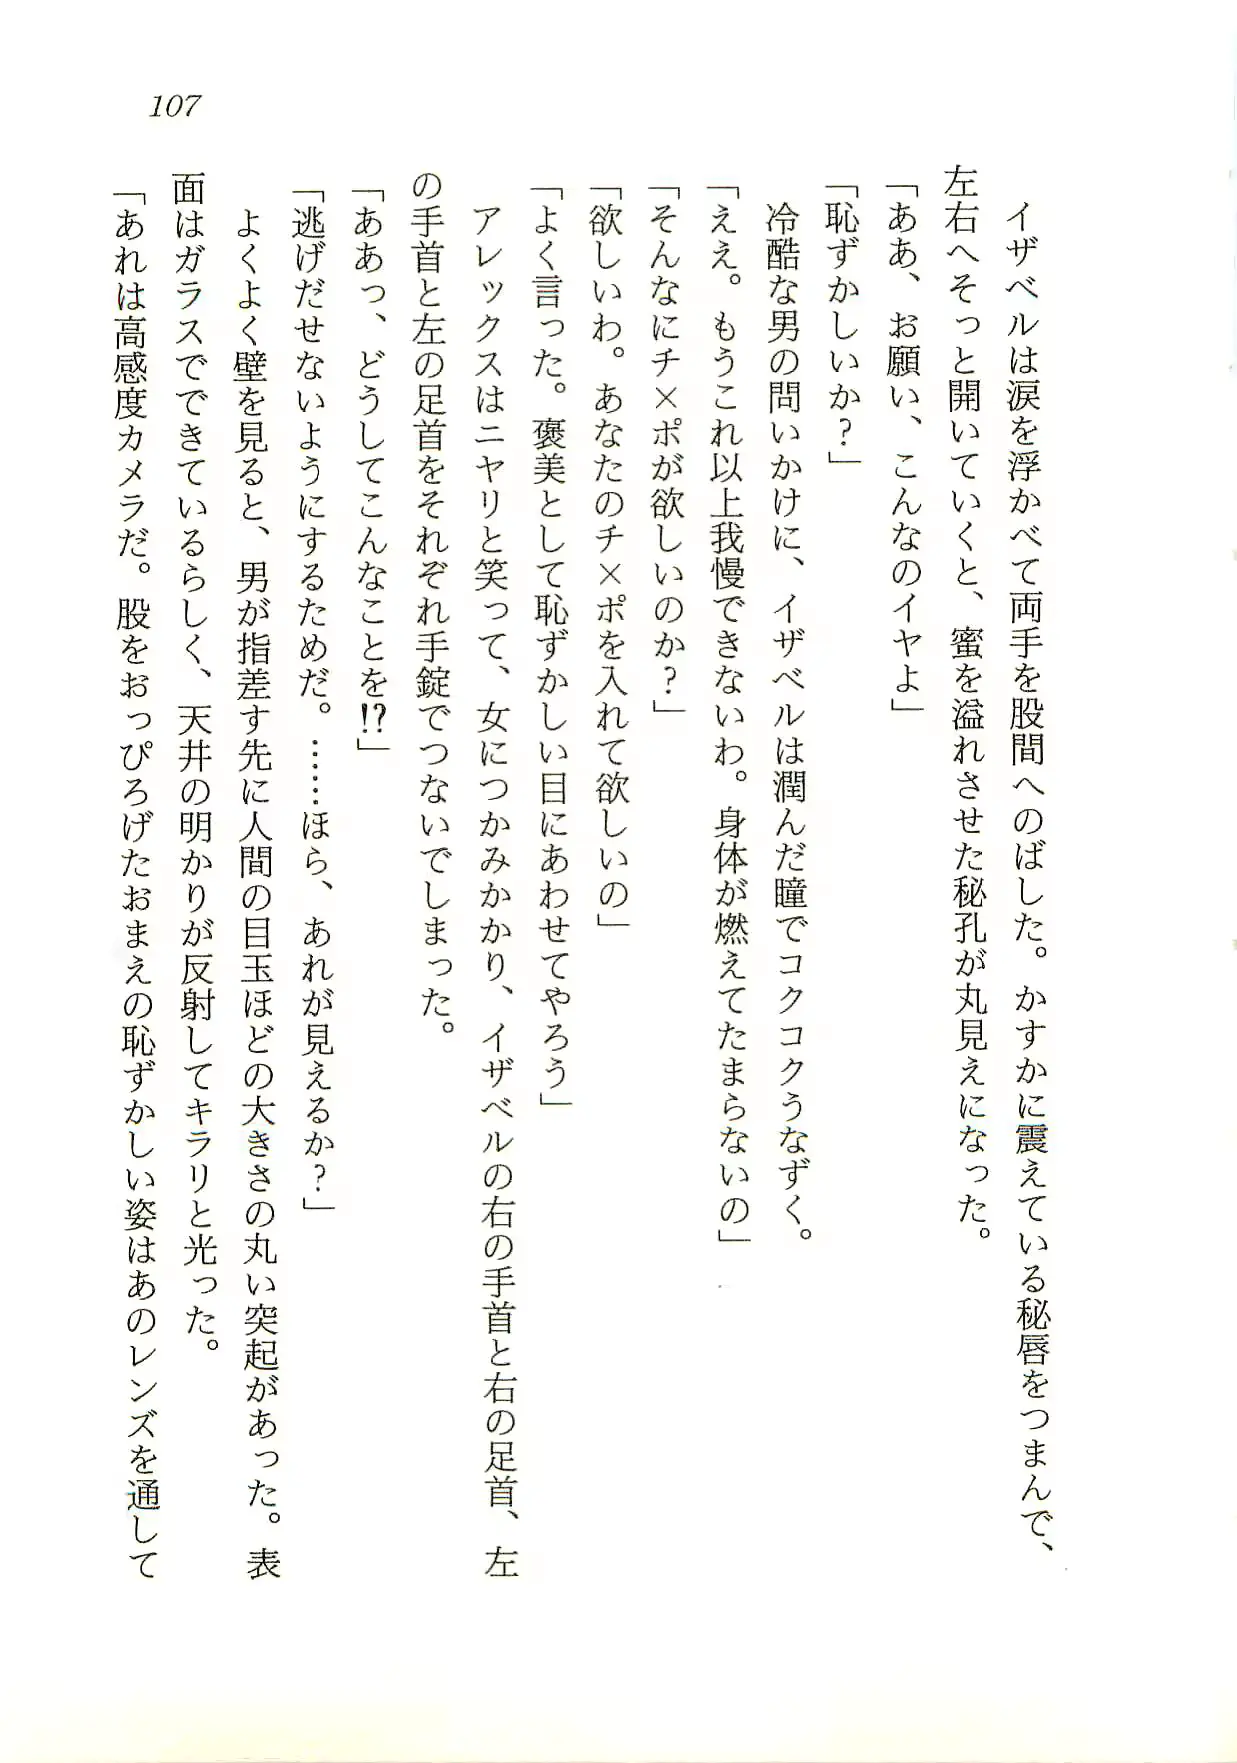 107
イザベルは涙を浮かべて両手を股間へのばした。かすかに震えている秘唇をつまんで、
左右へそっと開いていくと、蜜を溢れさせた秘孔が丸見えになった。
「ああ、お願い、こんなのイヤよ」
「恥ずかしいか?」
冷酷な男の問いかけに、イザベルは潤んだ瞳でコクコクうなずく。
「ええ。もうこれ以上我慢できないわ。身体が燃えてたまらないの」
「そんなにチ×ポが欲しいのか?」
「欲しいわ。あなたのチ×ポを入れて欲しいの」
「よく言った。褒美として恥ずかしい目にあわせてやろう」
アレックスはニヤリと笑って、女につかみかかり、イザベルの右の手首と右の足首、左
の手首と左の足首をそれぞれ手錠でつないでしまった。
「ああっ、どうしてこんなことを!?」
「逃げだせないようにするためだ。……ほら、あれが見えるか?」
よくよく壁を見ると、男が指差す先に人間の目玉ほどの大きさの丸い突起があった。表
面はガラスでできているらしく、天井の明かりが反射してキラリと光った。
「あれは高感度カメラだ。股をおっぴろげたおまえの恥ずかしい姿はあのレンズを通して